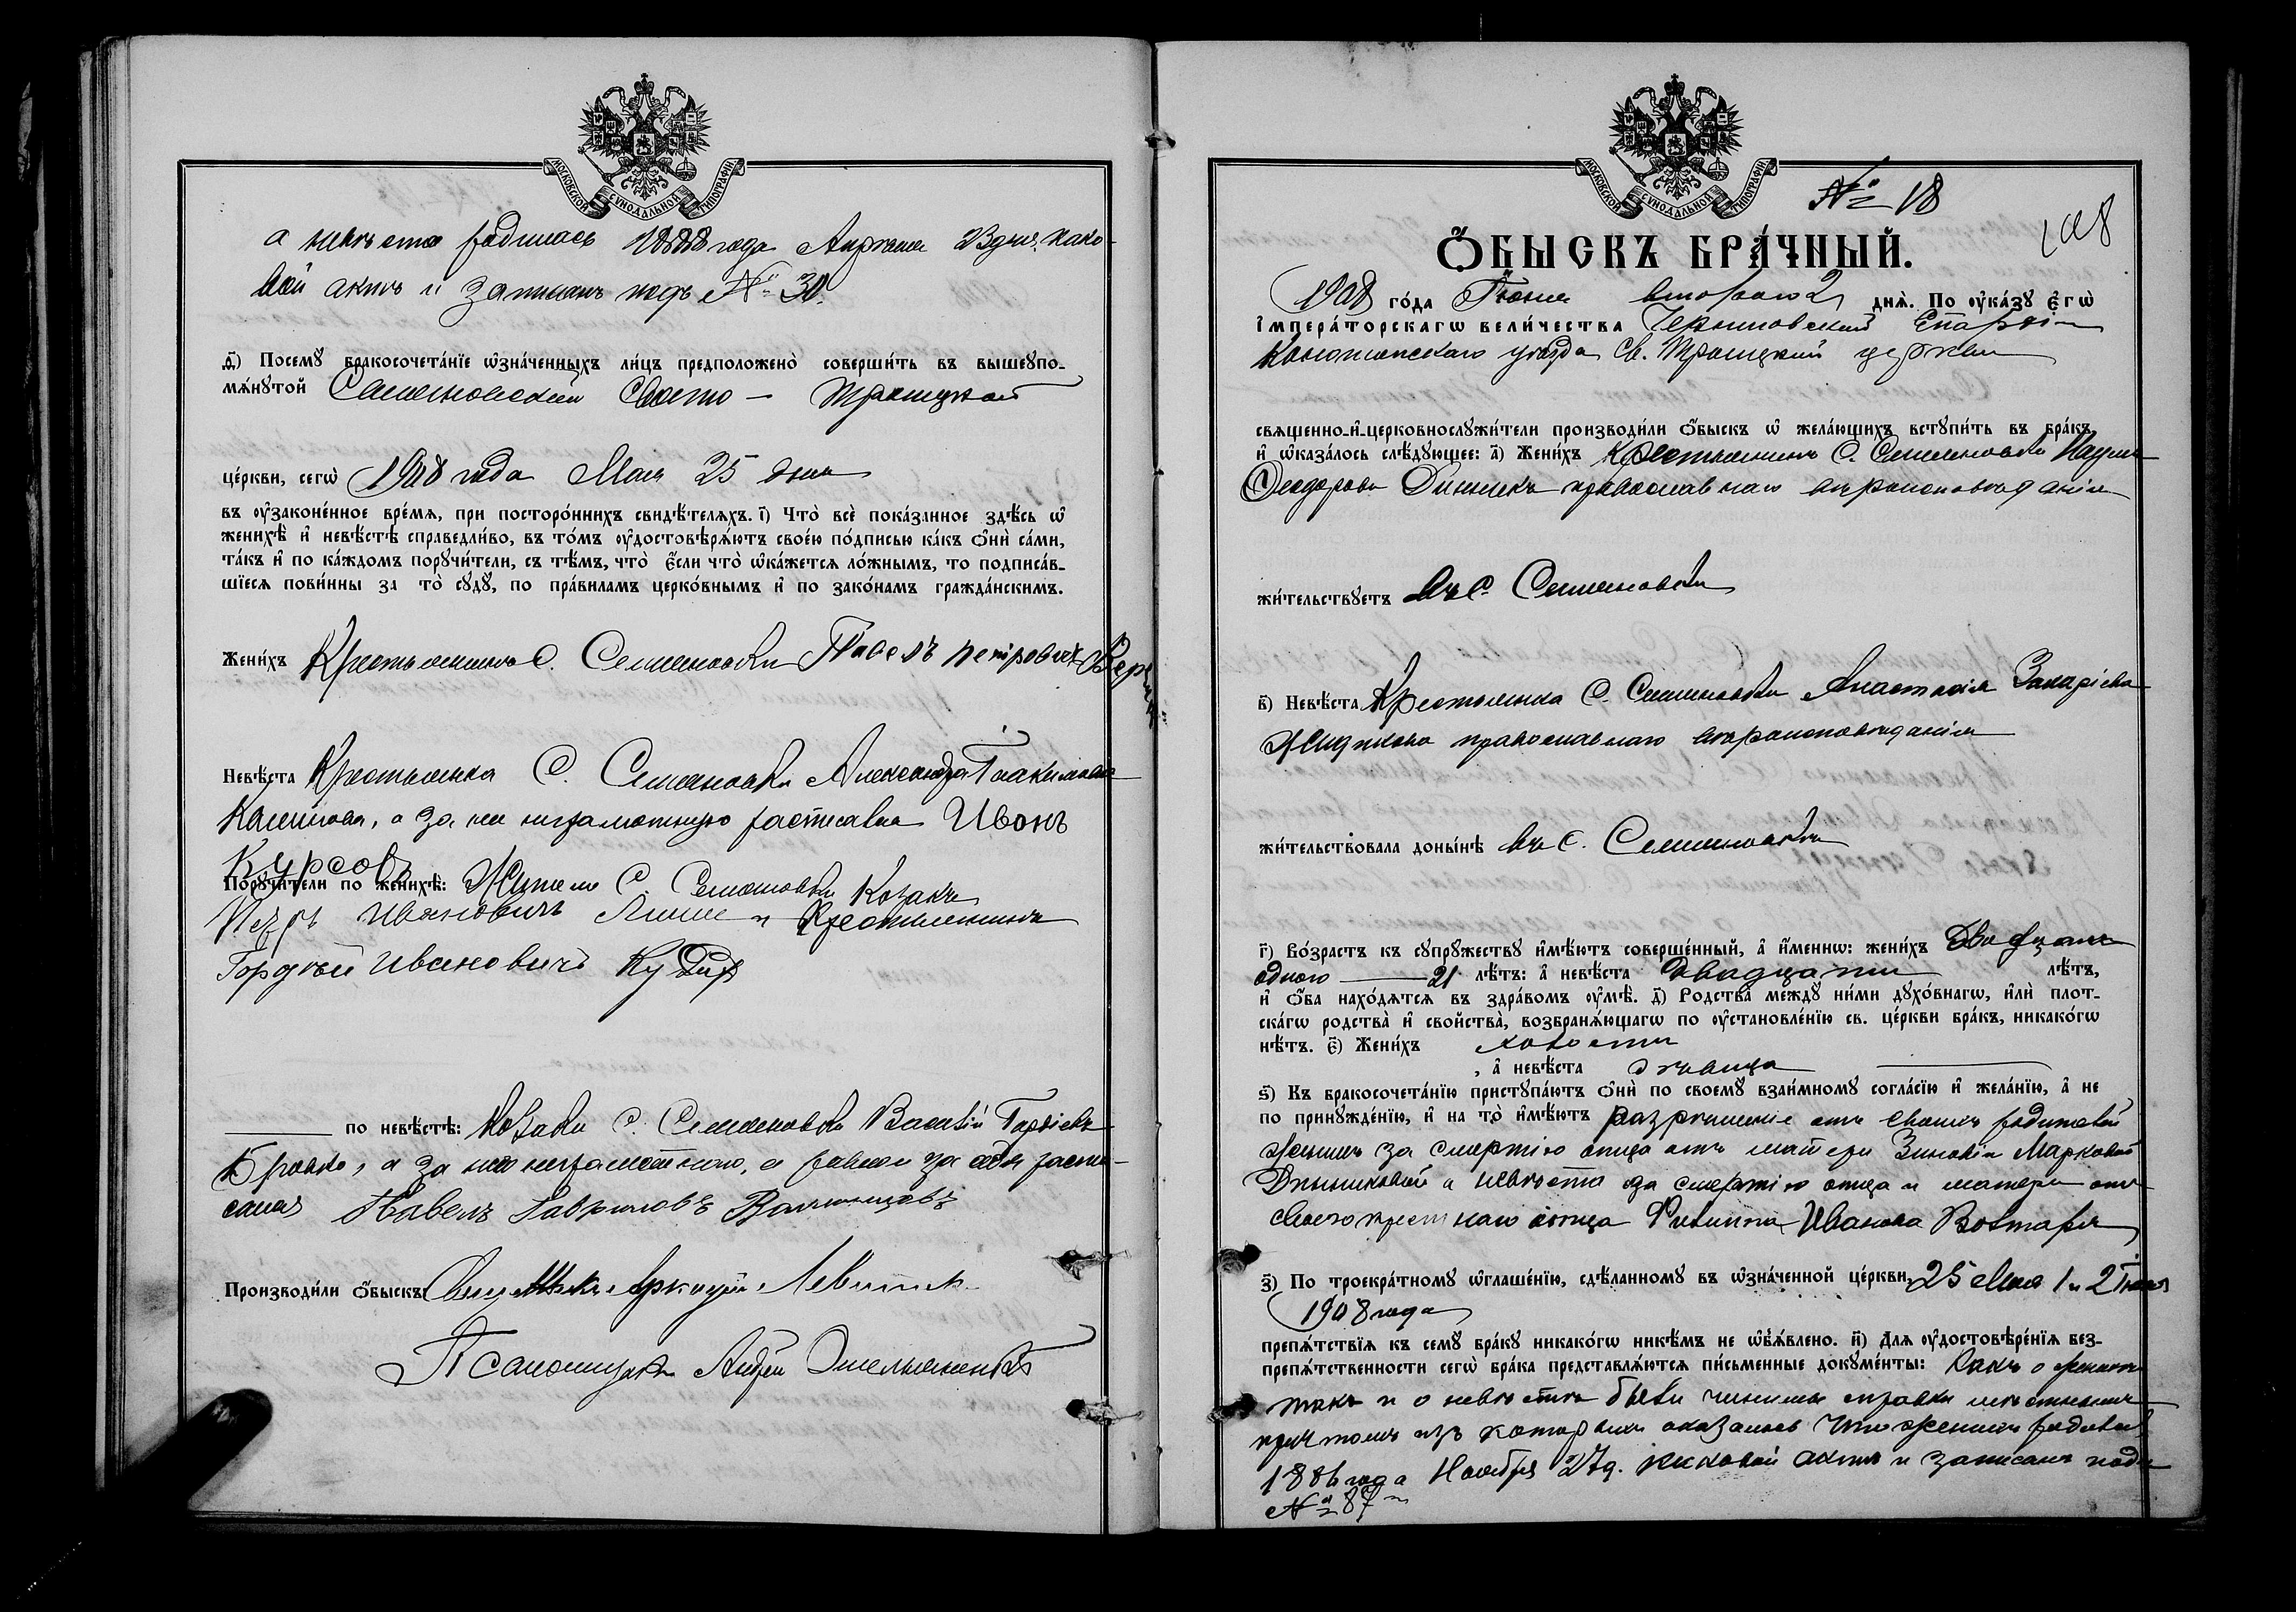 МОСКОВСКОЙ СѴНОДАЛЬНОЙ ТИПОГРАФІИ
а невѣста родилась 1888 года Апрѣля 23 дня, како-
вой актъ и записанъ подъ № 30.
д҃) Посемꙋ̀ бракосочета́нїе ѡ҆зна́ченныхъ ли́цъ предположено̀ соверши́ть въ вышеꙋпо-
мѧ́нꙋтой Семеновской Свято - Троицкой
це́ркви, сегѡ̀ 1908 года Мая 25 дня
въ ᲂу҆зако́ненное вре́мѧ, при посторо́ннихъ свидѣ́телѧхъ. і҃) Что̀ всѐ пока́занное здѣ́сь ѡ҆
женихѣ̀ и҆ невѣ́стѣ справедли́во, въ то́мъ ᲂу҆достовѣрѧ́ютъ свое́ю по́дписью ка́къ ѻ҆нѝ са́ми,
та́къ и҆ по ка́ждомъ порꙋчи́тели, съ тѣ́мъ, что̀ є҆́сли что̀ ѡ҆ка́жетсѧ ло́жнымъ, то подписа́в-
шїесѧ пови́нны за то̀ сꙋдꙋ̀, по пра́виламъ церко́внымъ и҆ по зако́намъ гражда́нскимъ.
Жени́хъ Крестьянинъ С. Семеновки Павелъ Петровичъ
Невѣ́ста Крестьянка С. Семеновки Александра Іоакимова
а за нее неграмотную росписался Иванъ
Курсовъ
Порꙋчи́тели по женихѣ̀: Жители С. Семеновки Козакъ
Петръ Ивановичъ и Крестьянинъ
Гордѣй Ивановичъ
по невѣ́стѣ: Козаки С. Семеновки Василій
а за него неграмотнаго, а равно и за себя роспи-
сался Павелъ Гавриловъ
Производи́ли ѻ҆́быскъ: Аркадій Левитскій
Псаломщикъ Андрей Омельяненко
МОСКОВСКОЙ СѴНОДАЛЬНОЙ ТИПОГРАФІИ
№ 18
108
Ѻ҆́БЫСКЪ БРА́ЧНЫЙ.
1908 го́да Іюня второго 2 днѧ̀. По ᲂу҆ка́зꙋ Є҆гѡ̀
І҆мпера́торскагѡ вели́чества Черниговской Епархіи
Конотопскаго уѣзда Св. Троицкой церкви
свѧщенно-и҆-церковнослꙋжи́тели производи́ли ѻ҆́быскъ ѡ҆ жела́ющихъ встꙋпи́ть въ бра́къ,
и҆ ѡ҆каза́лось слѣ́дꙋющее: а҃) Жени́хъ Крестьянинъ С. Семеновки Наумъ
Ѳеодоровъ православнаго вѣроисповѣданія
жи́тельствꙋетъ въ С. Семеновки
в҃) Невѣ́ста Крестьянка С. Семеновки Анастасія Захаріева
православнаго вѣроисповѣданія
жи́тельствовала доны́нѣ въ С. Семеновки
г҃) Во́зрастъ къ сꙋпрꙋ́жествꙋ и҆мѣ́ютъ соверше́нный, а҆ и҆́меннѡ: жени́хъ Двадцать
одного 21 лѣ́тъ: а҆ невѣ́ста двадцати лѣ́тъ,
и҆ ѻ҆́ба нахо́дѧтсѧ въ здра́вомъ ᲂу҆мѣ̀. д҃) Родства̀ междꙋ̀ ни́ми дꙋхо́внагѡ, и҆лѝ плот-
ска́гѡ родства̀ и҆ сво́йства̀, возбранѧ́ющагѡ по ᲂу҆становле́нїю св. це́ркви бра́къ, никако́гѡ
нѣ́тъ. є҃) Жени́хъ холостъ
, а҆ невѣ́ста дѣвица
ѕ҃) Къ бракосочета́нїю пристꙋпа́ютъ ѻ҆нѝ по своемꙋ̀ взаи́мномꙋ согла́сїю и҆ жела́нїю, а҆ не
по принꙋжде́нїю, и҆ на то̀ и҆мѣ́ютъ разрѣшеніе отъ своихъ родителей
Женихъ за смертію отца отъ матери Зиновіи Марковой
а невѣста за смертію отца и матери отъ
своего крестнаго отца Филиппа Иванова Вовтаря
з҃) По троекра́тномꙋ ѡ҆глаше́нїю, сдѣ́ланномꙋ въ ѡ҆зна́ченной це́ркви, 25 Мая 1 и 2 Іюня
1908 года
препѧ́тствїѧ къ семꙋ̀ бра́кꙋ никако́гѡ никѣ́мъ не ѡ҆бъѧ́влено. и҃) Длѧ ᲂу҆достовѣре́нїѧ без-
препѧ́тственности сегѡ̀ бра́ка представлѧ́ютсѧ пи́сьменные докꙋме́нты: Какъ о женихѣ
такъ и о невѣстѣ были чинимы справки мѣстнымъ
причтомъ изъ которыхъ оказалось что женихъ родился
1886 года Ноября 27 д. каковой актъ и записанъ подъ
№ 87